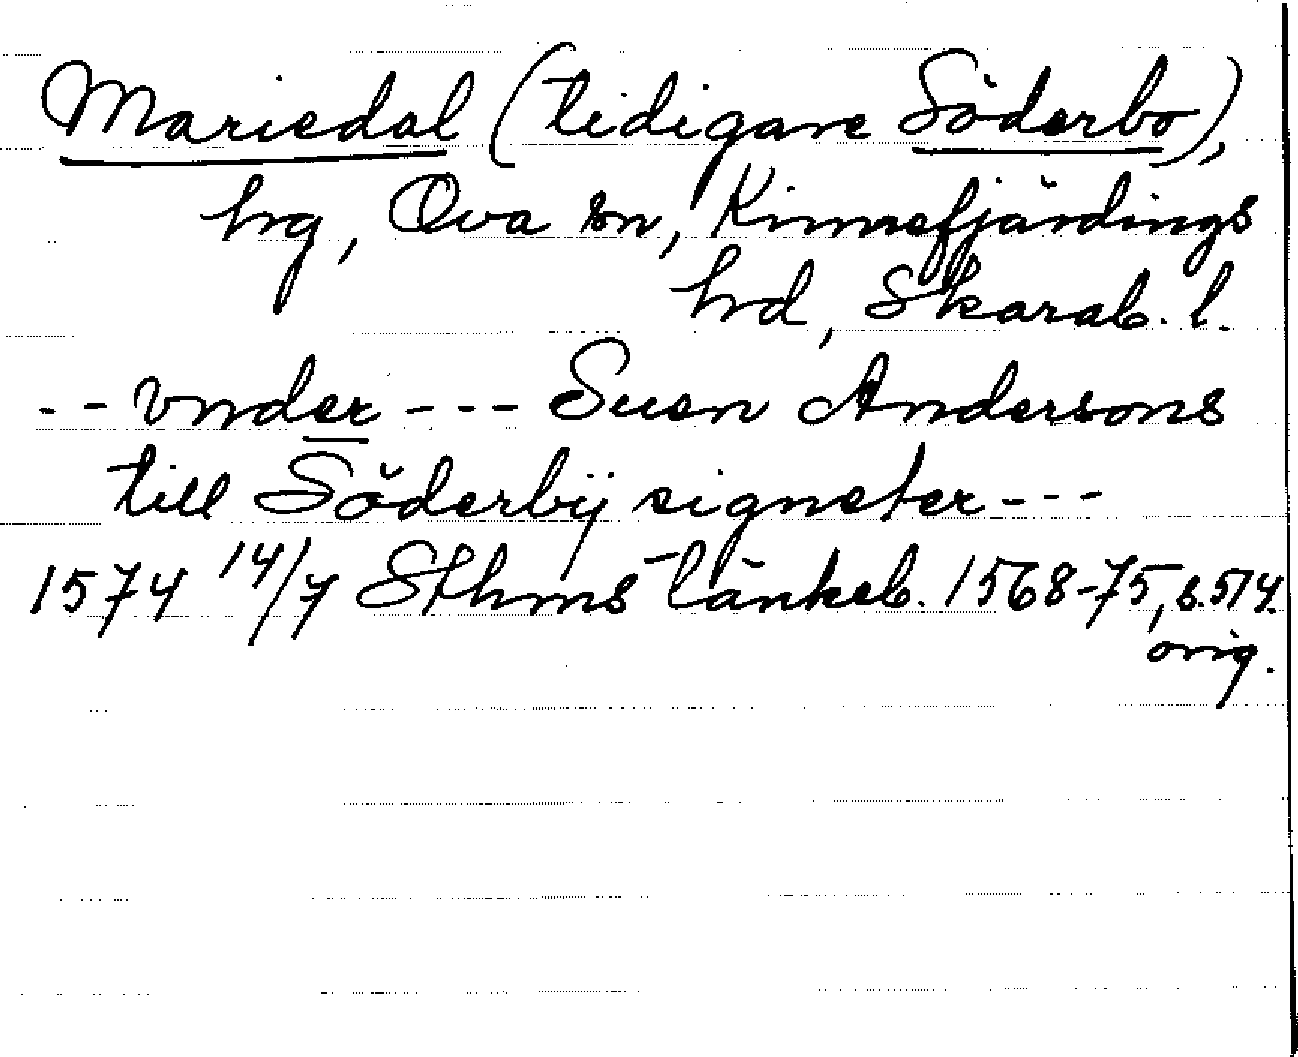 Mariedal (tidigare Söderbo),
hg, Ova sn, Kinnefjärdings
hd, Skarab. l.
- - vnder - - - Suen Andersons
till Söderbÿ signeter - - -
1574 14/7 Sthms tänkeb. 1568-75, s. 514.
orig.